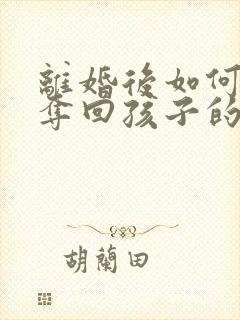 離婚後如何
奪回孩子的
胡蘭田